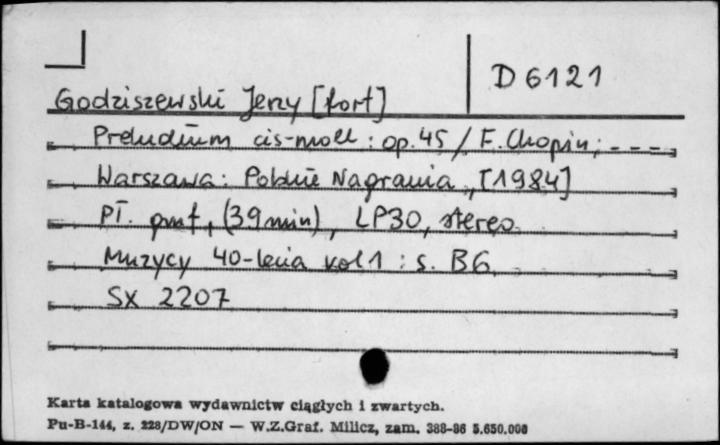 D 6121
Godziszewski Jerzy [fort]
Preludium cis-moll : op. 45 / F. Chopin; - - -
Warszawa : Polskie Nagrania, [1984]
Pł. gmf, (39 min), LP30, stereo
Muzycy 40-lecia vol 1 : s. B6
SX 2207
Karta katalogowa wydawnictw ciągłych i zwartych.
Pu-B-144, z. 228/DW/ON — W.Z.Graf. Milicz, zam. 388-86 5.650.000